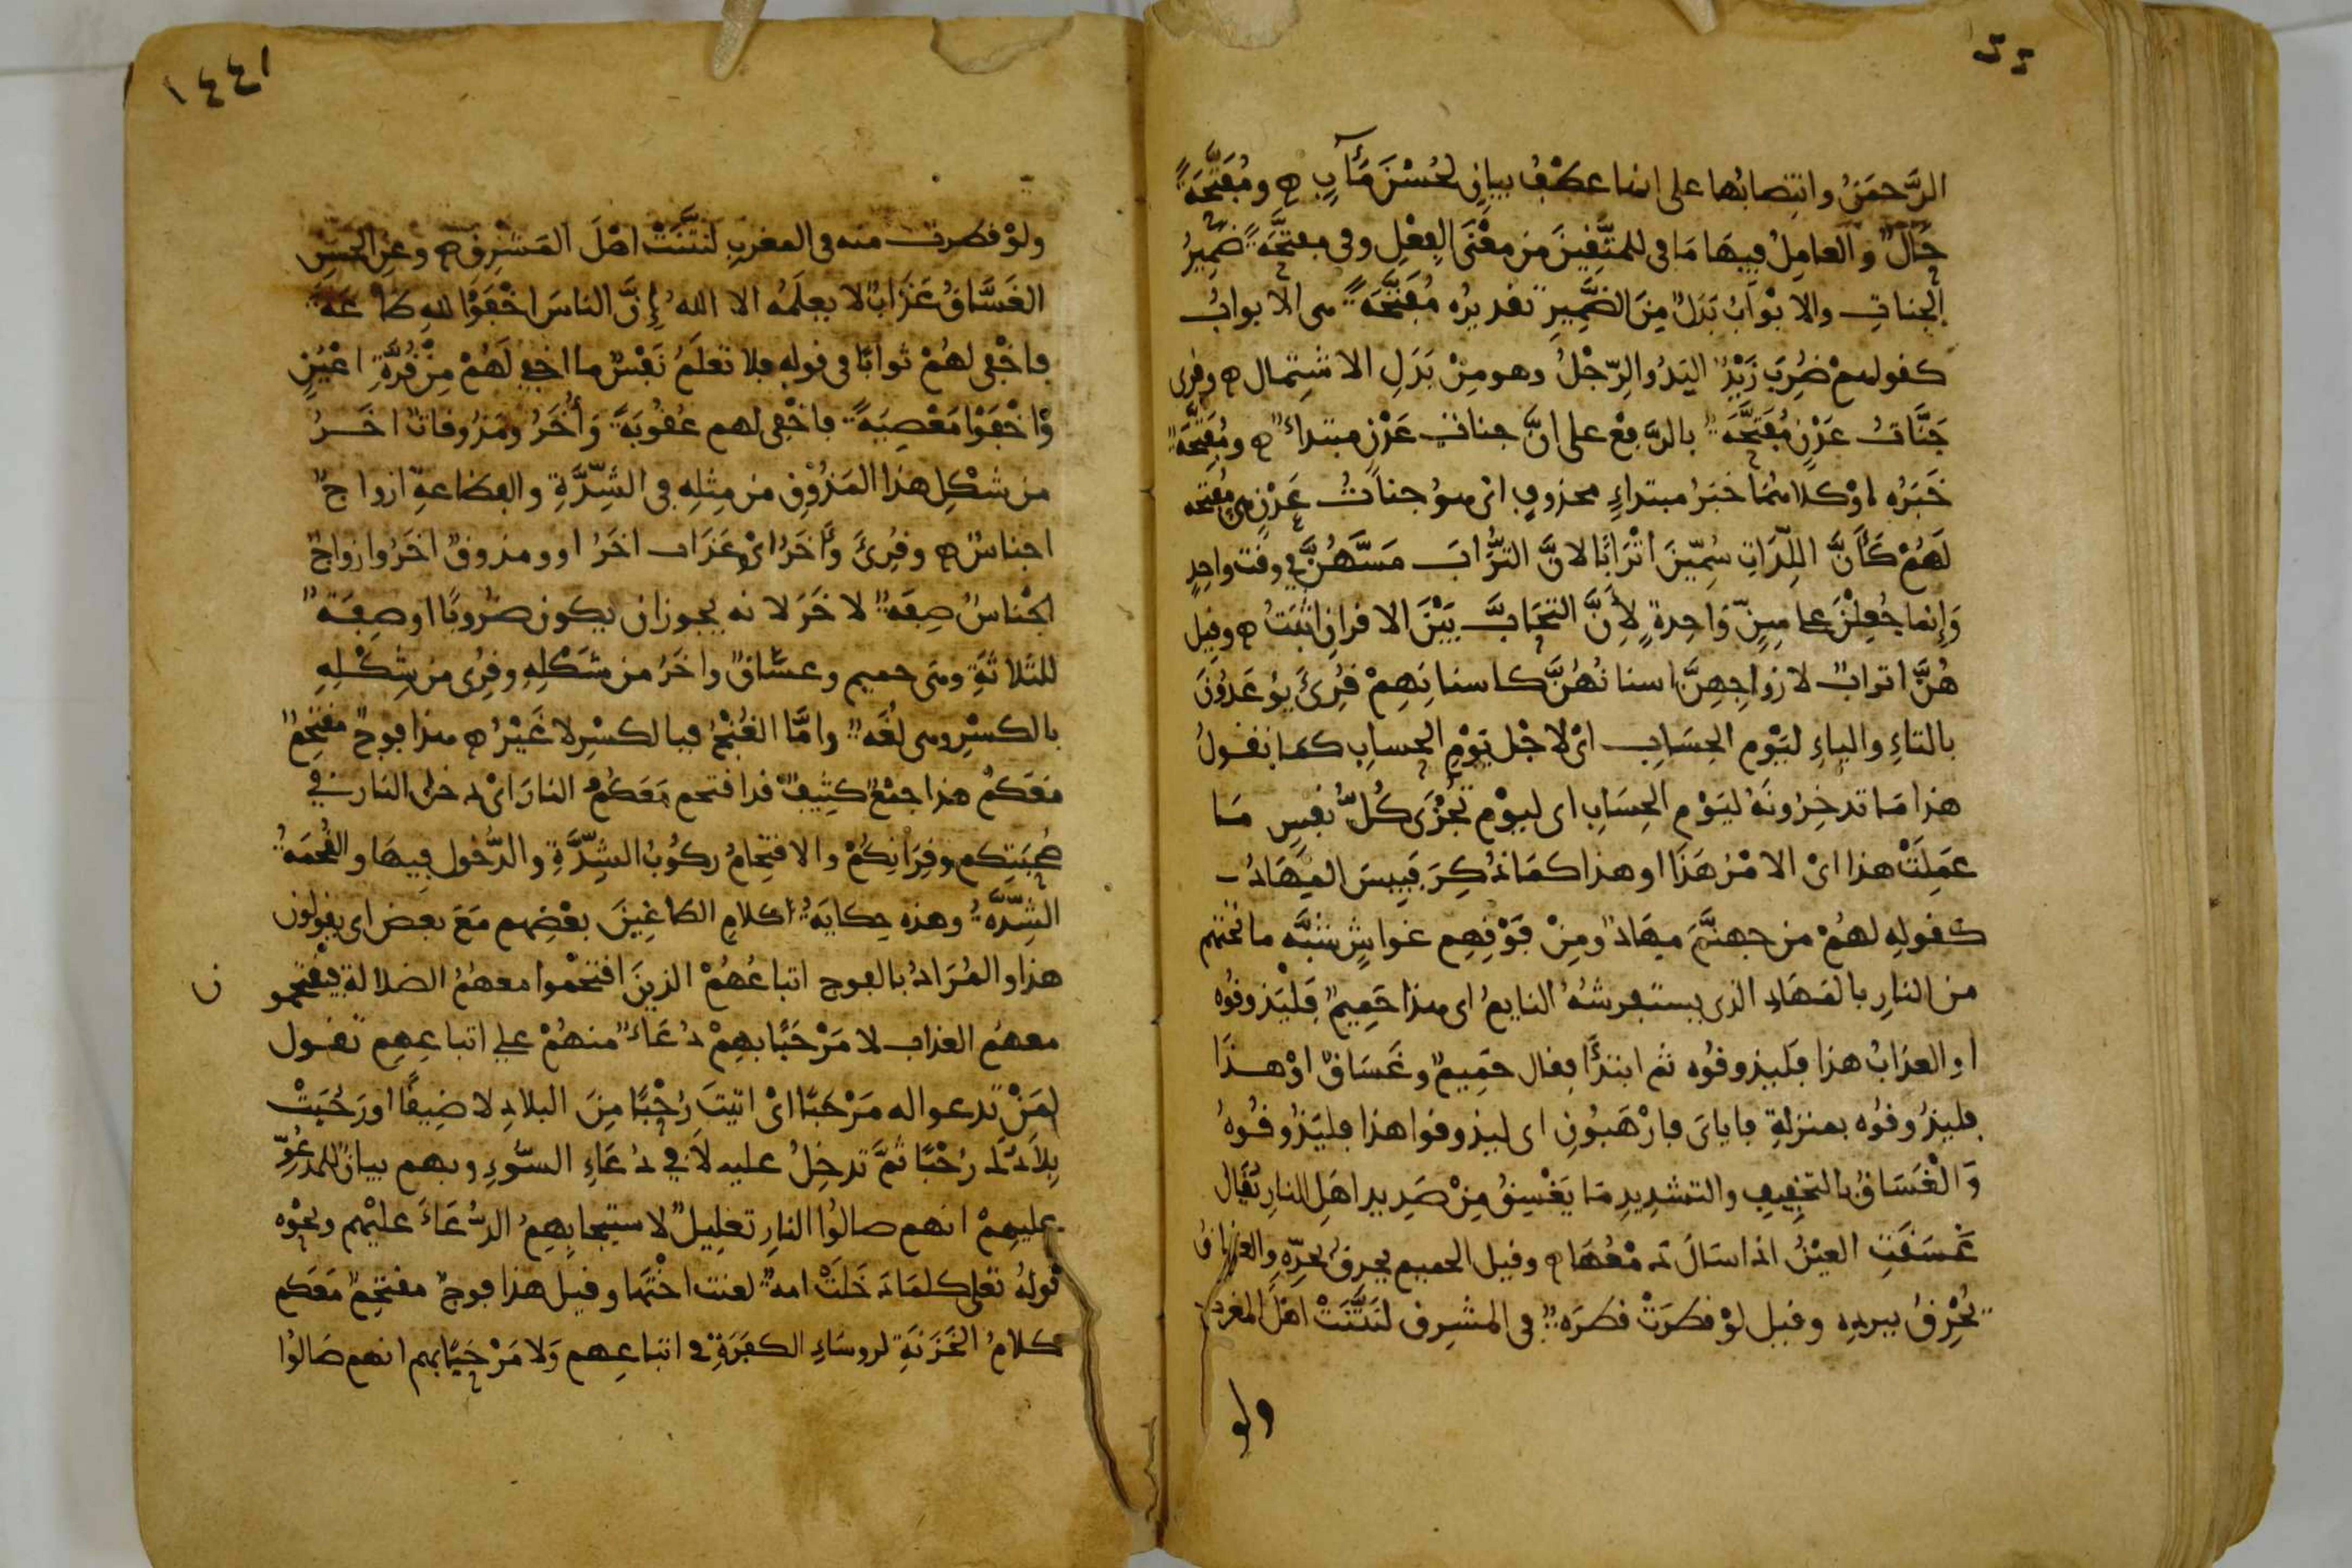 الرَّحمَنُ وانتِصابُها على انها عطفُ بيانٍ لحُسْنَ مَـَٔابٍ ۝ ومُفَتَّحَةً
حَالٌ والعامِلُ فيهَا مَا في للمتَّقِينَ مَن معْنَى الفِعْلِ وفي مفتَّحَةً ضَمِيرُ
الجنات والابْوَابُ بَدَلٌ مِنَ الضَّمِيرِ تقديرُه مُفَتَّحَةً هي الابوابُ
كقولهمْ ضُرِبَ زَيْدٌ اليَدُ والرِّجْلُ وهو مِنْ بَدَلِ الاشتِمال ۝ وقرى
جَنَّاتُ عَدْنٍ مُفَتَّحَةٌ بالرَّفعْ على انَّ جناتِ عَدْنٍ مبتداءٌ ۝ ومُفَتَّحَةٌ
خَبَرُه اوْ كلاهُمَا خبَرُ مبتداءٍ محذوفٍ اىْ هوُ جناتُ عَدْنٍ هي مُفتحه
لَهُمْ كَأَنَّ اللِّدَاتِ سُمِّينَ اتْرَابًا لانَّ التُّرَابَ مَسَّهُنَّ في وقت واحِدٍ
وَإنما جُعِلْنَ على سِنٍّ وَاحِدةٍ لِأَنَّ التحَابَّ بَيْنَ الاقرانِ اثبَتُ ۝ وقيل
هُنَّ اترابٌ لازواجِهِنَّ اسنانُهُنَّ كاسنانِهِمْ قُرِئَ يُوعَدُونَ
بالتاءِ والياءِ ليَوْمِ الحِسَابِ اىْ لاجْل يَوْمِ الحسابِ كما تقولُ
هذا مَا تدخِرُونَهُ ليَوْمِ الحِسَابِ اى ليوْمِ تُجْزَى كُلُّ نفسٍ مَا
عَمِلَتْ هذا اىْ الامْرُ هَذَا او هذا كمَا ذُكِرَ فَبِيسَ المِهَادُ
كقولِهِ لهُمْ من جهنَّمَ مِهَادٌ ومِنْ فَوْقِهِم غواشٍ شبَّه ما تحتهم
من النارِ بالمَهَادِ الذى يستفرشهُ النايمُ اى هذا حَمِيمٌ فَليَذوقوُه
اوِ العذابُ هذا فَليذوقوُه ثم ابتدَأَ فقال حَمِيمٌ وغَسَاقٌ اوْ هـذا
فليذُوقوُه بمنزلةِ فاياىَ فارْهَبُونِ اى ليذوقوا هذا فليَذُوقُوهُ
وَالْغَسَاقُ بالتخفِيفِ والتشدِيدِ مَا يَغْسِقُ مِنْ صَدِيدِ اهَلِ النارِ يُقَالُ
غَسَقَتِ العيْنُ اذا سَالَ دَمْعُهَا ۝ وقيل الحميم يحرقُ بحرِّهِ والغساقُ
يُحْرِقُ ببردِه وقيل لوْ قطَرَتْ قطرَةٌ في المشرِق لنَتَّنَتْ اهْلَ المغرب
ولو
ولوْ قطرت منه في المغربِ لنتَّنَتْ اهْلَ المَشرِقِ ۝ وعنِ الحسَنِ
الغَسَّاقُ عَذَابٌ لا يعلَمُه الا اللهُ إِنَّ الناسَ اخْفَوْا للهِ طاعَةً
فاخْفى لهُمْ ثوابًا في قوله فلا تعلَمُ نَفْسٌ ما اخفى لَهُمْ مِنْ قُرَّةِ اعْيُنٍ
وَاخْفَوْا مَعْصِيَةً فاخْفى لهم عُقُوبَةً وَأُخَرُ ومَذُوقاتٌ اخَـرُ
من شكْلِ هذا المَذُوقِ من مِثلِهِ في الشِّدَّةِ والفظاعةِ ازواجٌ
اجناسٌ ۝ وقُرِئَ وَآخَرُ اىْ وعَذَاب اخَرُ او ومذوقٌ اخَرُ وازواجٌ
اجْناسٌ صِفَةٌ لاخَرَ لانه يجوز ان يكون ضُروبًا او صِفَةٌ
للثلاثةِ وهَى حميم وغسَّاقٌ واخَرُ من شَكْلِهِ وقُرِى من شِكْلِهِ
بالكسْرِ وهى لُغَةٌ وامَّا الغُنْجُ فبالكسْرِ لا غَيْرُ ۝ هذا فوجٌ مقتحِمٌ
مَعَكُمْ هذا جمْعٌ كثِيفٌ قد اقتحم مَعَكُمُ النارَ اىْ دخل النار في
صُحبَتِكم وقِرَانِكُمْ والاقتِحامُ ركُوبُ الشِّدَّةِ والدُّخول فِيهَا والقُحمَةُ
الشِّدَّةُ وهذه حِكايَةُ كلامِ الطاغِينَ بعْضِهم مَعَ بعض اى يقولون
هذا والمُرَادُ بالفوج اتباعُهُمْ الذينَ اقتحَمُوا معهُمُ الضلالة فيقتحمو
ن
معهمُ العذاب لا مَرْحَبًا بهِمْ دُعَاءٌ منهُمْ على اتباعِهِم تقـول
لمَنْ تدعوا له مَرْحَبًا اىْ اتيتَ رُحْبًا مِنَ البلادِ لا ضِيقًا او رَحُبَتْ
بِلَادُكَ رُحْبًا ثمَّ تدخِلُ عليه لَا في دُعَاءِ السُّوءِ وبهم بيانٌ للمدعُوِّ
عليهِمْ انهم صالُوا النارِ تعْلِيلٌ لاستيجابِهِمُ الدُّعَاءَ عليْهم ونحْوُه
قولهُ تعلى كلمَا دَخَلتْ امةٌ لعنت اختَهَا وقيل هذا فوجٌ مقتحِمٌ مَعَكم
كلامُ الخَزَنَةِ لروسَاءِ الكفَرَةِ في اتباعِهم وَلا مَرْحَبًا بهم انهم صَالوُا